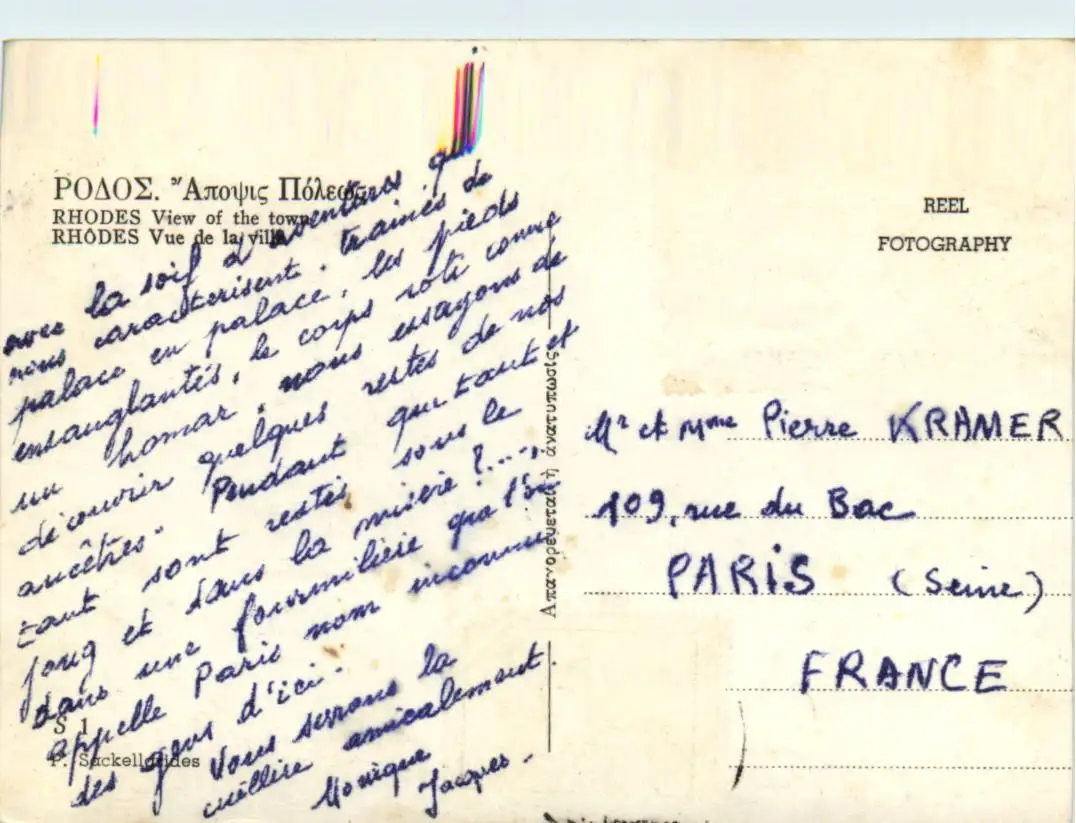 ΡΟΔΟΣ. Ἄποψις Πόλεως
RHODES View of the town
RHÔDES Vue de la ville
REEL
FOTOGRAPHY
avec la soif d'aventures qui
nous caractérisent, trainés de
palace en palace, les pieds
ensanglantés, le corps roti comme
un homar, nous essayons de
découvrir quelques restes de nos
ancêtres" Pendant que tant et
tant sont restés sous le
joug et dans la misère ?...,
dans une fourmilière que l'on
appelle Paris nom inconnu
des gens d'ici.
Vous serrons la
amicalement.
Monique
Jacques.
Ἀπαγορεύεται ἡ ἀνατύπωσις
Mr et Mme Pierre KRAMER
109, rue du Bac
PARIS (Seine)
FRANCE
S 1
P. Sackellarides